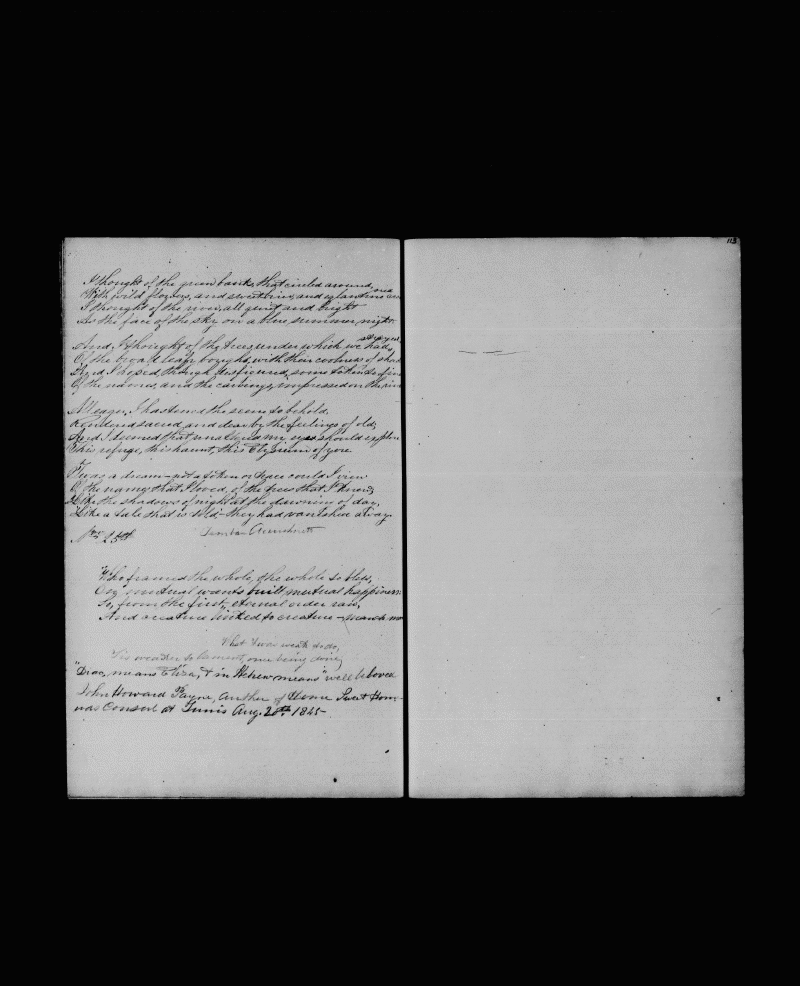 113
I thought of the green banks, that circled around,
With wild flowers, and sweetbrier, and eglantine
I thought of the river, all quiet and bright
As the face of the sky on a blue summer night.
And, I thought of the trees, under which we had strayed
Of the broad leafy boughs, with their coolness of
And I hoped, though disfigured, some token to find
Of the names, and the carvings, impressed on the
All eager, I hastened the scene to behold,
Rendered sacred and dear by the feelings of old,
And I deemed that unaltered my eye should explore
This refuge, this haunt, this Elysium of yore
'Twas a dream—not a token or trace could I view
Of the names that I loved, of the trees that I knew,
Like the shadows of night at the dawning of day,
Like a tale that is told—they had vanished away.
25th
Who frames the whole, the whole to bless,
On mutual wants built mutual happiness
So, from the first, eternal order ran,
And creature linked to creature—
What 'twere weak to do,
'Tis weaker to lament, once being done,
means Eliza, & in Hebrew means "well beloved
John Howard Payne, Author of Home Sweet Home
was Consul at Tunis Aug. 28th 1845